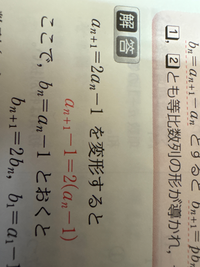 b_n=a_{n+1}-a_n とすると b_{n+1}=pb_n
1, 2とも等比数列の形が導かれ,
解答
a_{n+1}=2a_n-1 を変形すると
a_{n+1}-1=2(a_n-1)
ここで, b_n=a_n-1 とおくと
b_{n+1}=2b_n, b_1=a_1-1